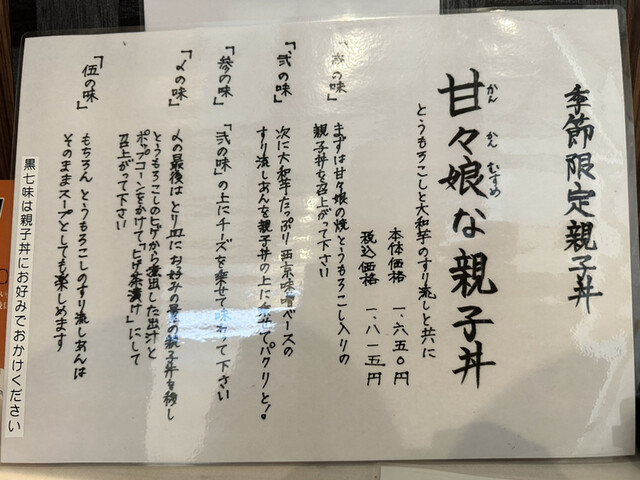 季節限定親子丼
甘々娘な親子丼
かん かん むすめ
とうもろこしと大和芋のすり流しと共に
本体価格 一、六五〇円
税込価格 一、八一五円
の味」
まずは甘々娘の焼とうもろこし入りの
親子丼を召上がって下さい
「弐の味」
次に大和芋たっぷり西京味噌ベースの
すり流しあんを親子丼の上に乗せてパクリと!
「参の味」
「弐の味」の上にチーズを乗せて味わって下さい
「〆の味」
〆の最後はとり皿にお好みの量の親子丼を移し
とうもろこしのヒゲから煮出した出汁と
ポップコーンをかけて「ヒゲ茶漬け」にして
召上がって下さい
「伍の味」
もちろん とうもろこしのすり流しあんは
そのままスープとしても楽しめます
黒七味は親子丼にお好みでおかけください